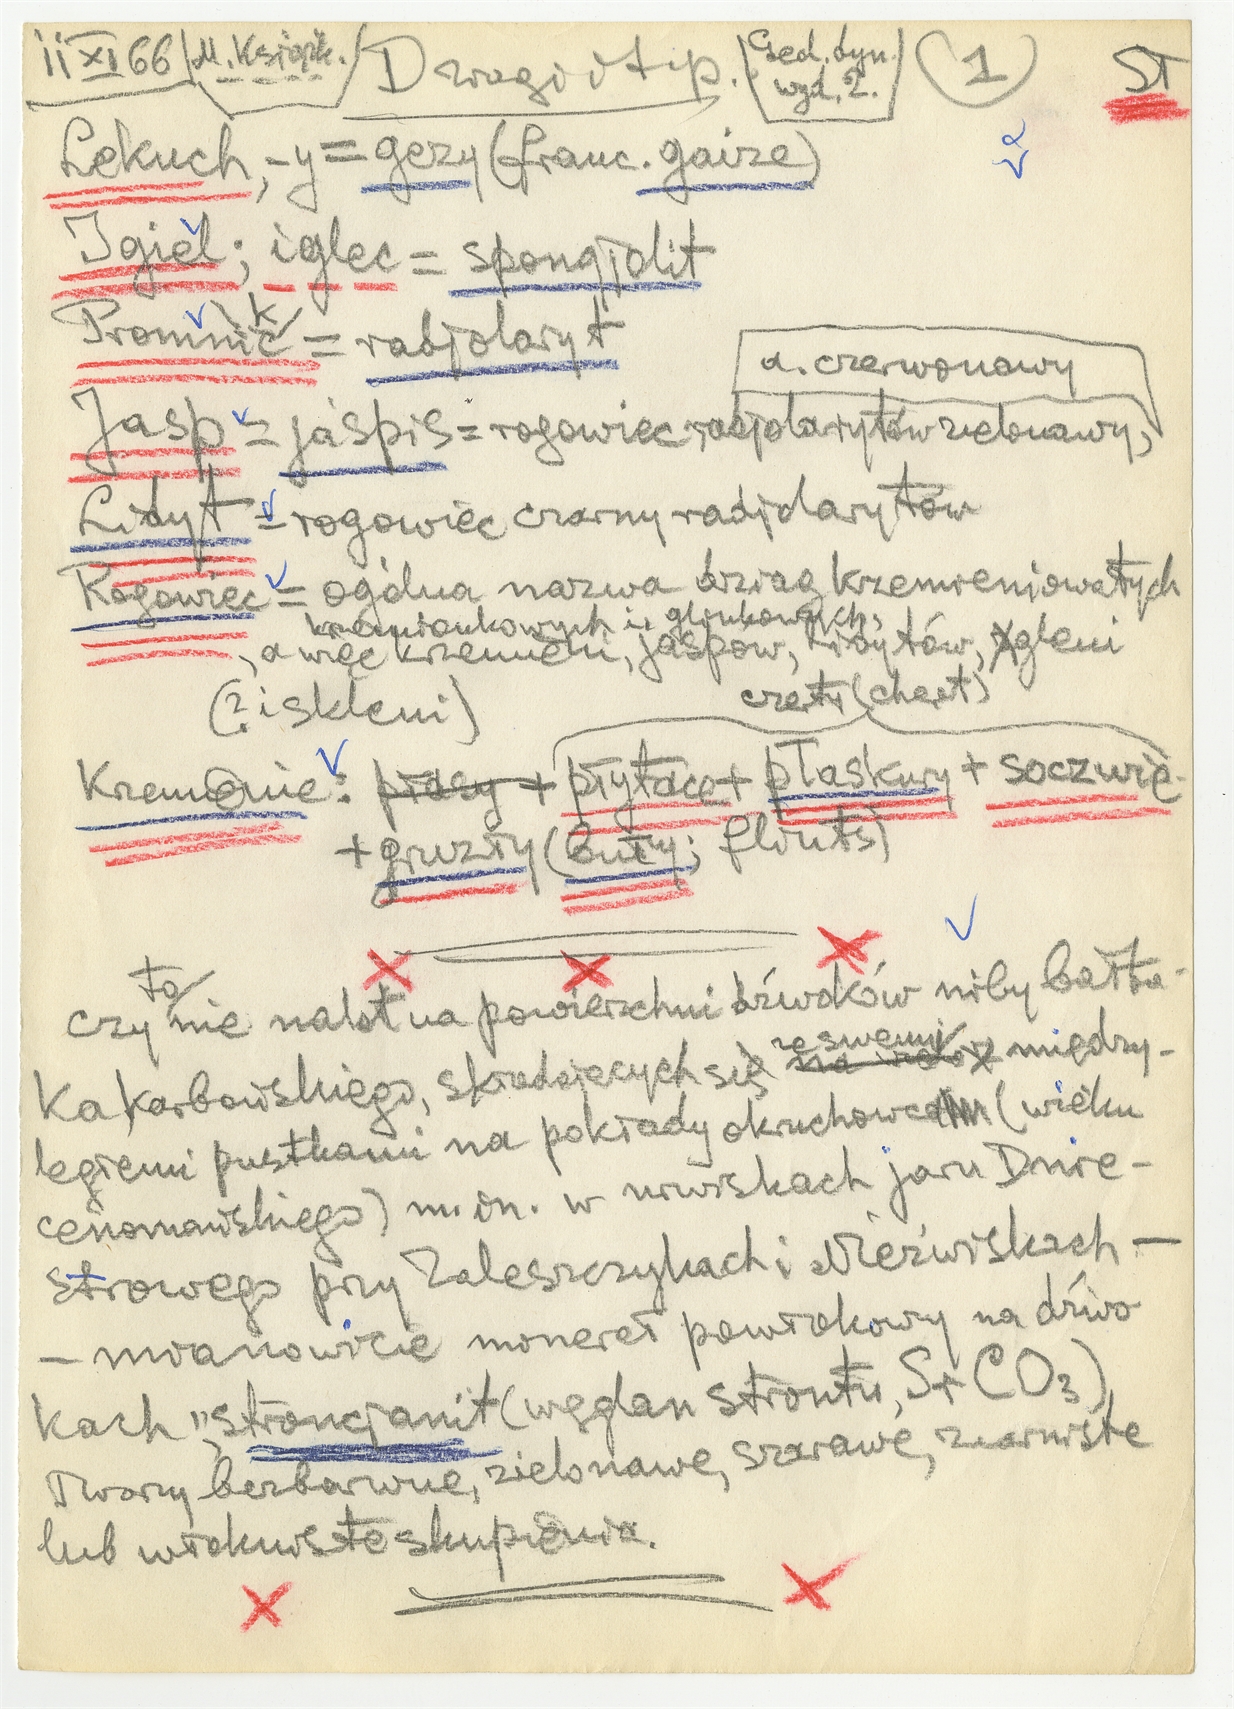 ii XI 66 M. Książk. Dragi i t.p. Geol. dyn. 1 ST
wyd. 2.
Lekuch, -y = gezy (franc. gaize)
Igieł; iglec = spongjolit
k
Promnic = radjolaryt
a. czerwonawy
Jasp = jaspis = rogowiec radjolarytów zielonawy,
Lidyt = rogowiec czarny radjolarytów
Rogowiec = ogólna nazwa brziag krzemieniowatych
krzemionkowych i glinkowych,
, a więc krzemieni, jaspów, lidytów, gleni
(? i skleni)
czerty (chert)
Kremienie: płasy + płytacze + płaskury + soczwie
+ gruzły (buły; flints)
to
czy nie nalot na powierzchni dźwoków niby bałta-
ze swemi
ka karbowskiego, składających się na między-
ległemi pustkami na pokłady okruchowca (wieku
cenomańskiego) m. in. w urwiskach jaru Dnie-
strowego przy Zaleszczykach i Nieźwiskach —
— mianowicie minerał powłokowy na dźwo
kach "stroncjanit (węglan strontu, SrCO3),
Tworzy bezbarwne, zielonawe, szarawe, ziarniste
lub włókniste skupienia.